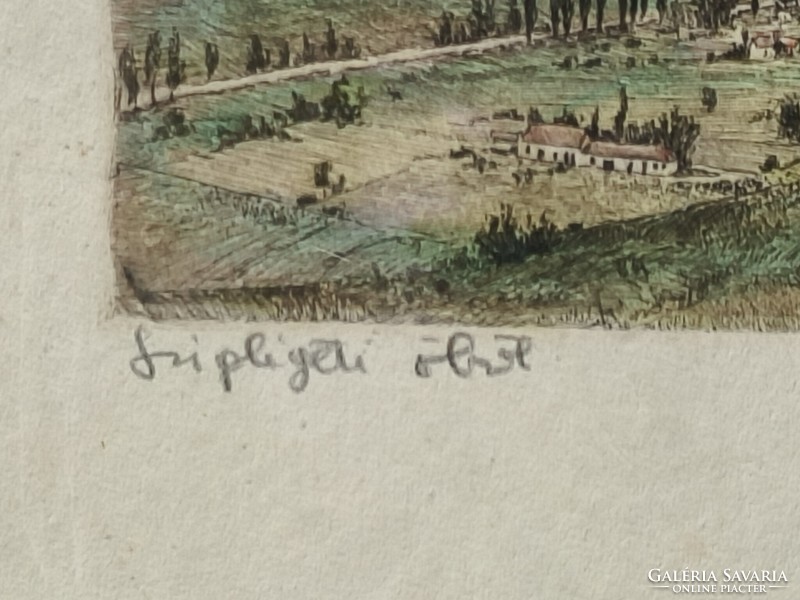 Szipligeti öböl
GALÉRIA SAVARIA
ONLINE PIACTÉR